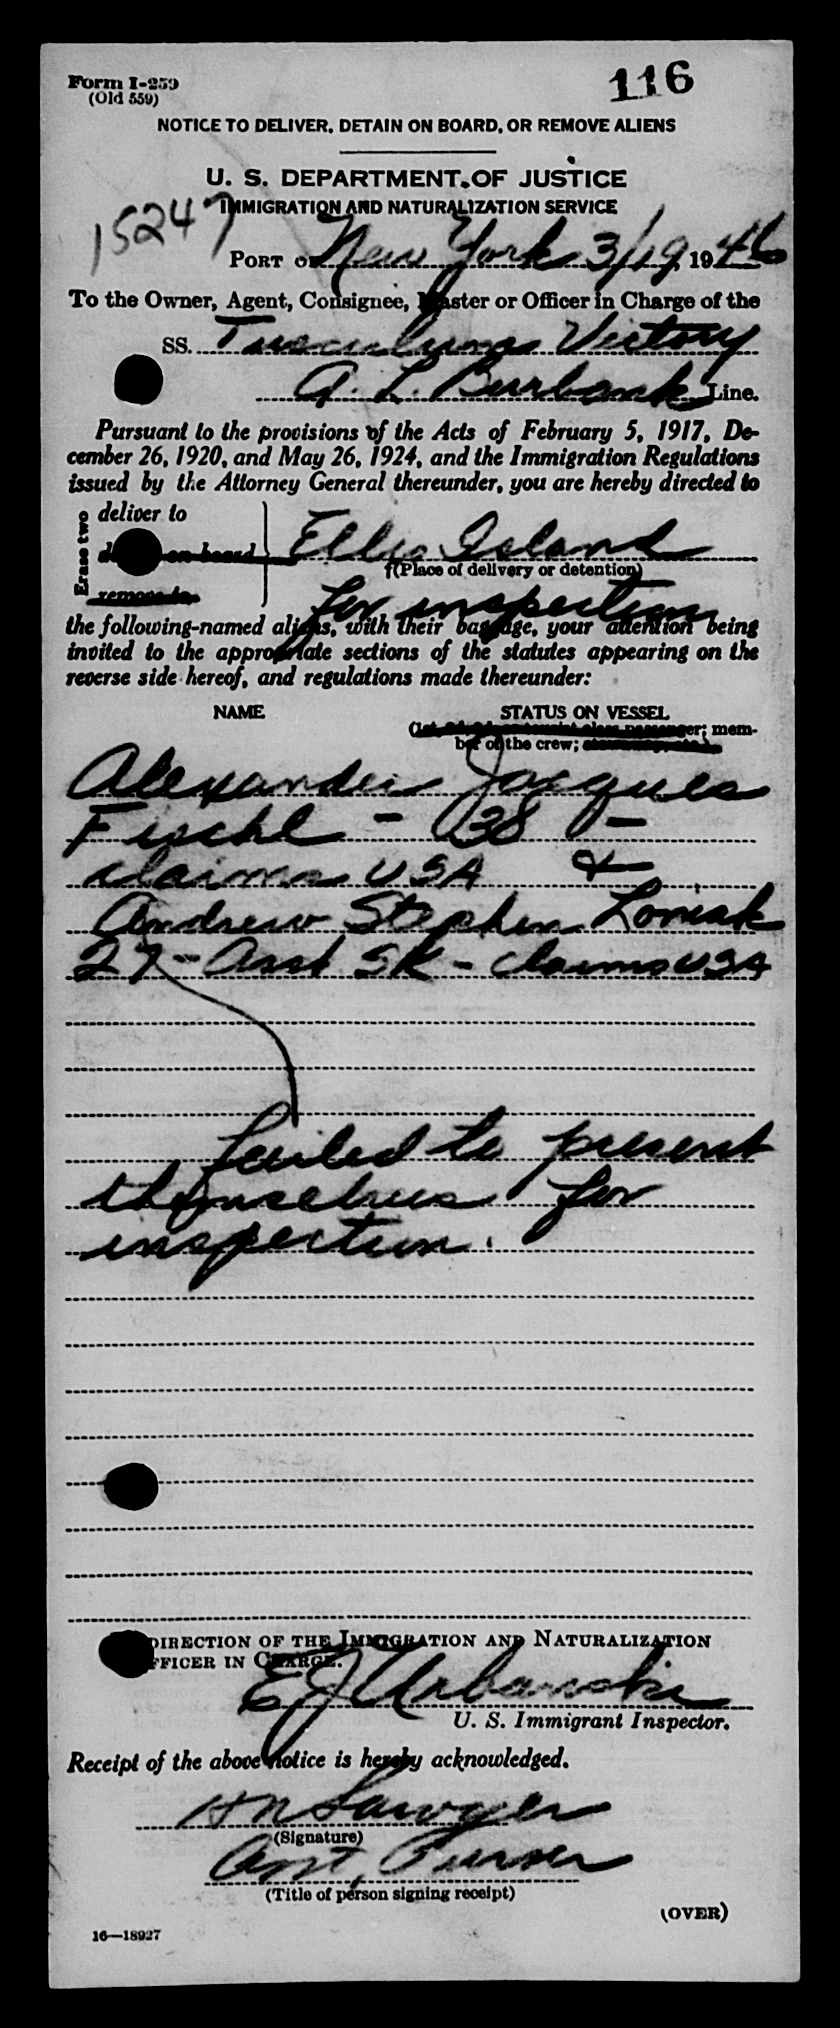 Form I-259
(Old 559)
116
NOTICE TO DELIVER, DETAIN ON BOARD, OR REMOVE ALIENS
U. S. DEPARTMENT OF JUSTICE
IMMIGRATION AND NATURALIZATION SERVICE
15247
PORT OF New York 3/19 1946
To the Owner, Agent, Consignee, Master or Officer in Charge of the
SS. Tusculum Victory
A. L. Burbank Line.
Pursuant to the provisions of the Acts of February 5, 1917, De-
cember 26, 1920, and May 26, 1924, and the Immigration Regulations
issued by the Attorney General thereunder, you are hereby directed to
Erase two
deliver to
on board
remove to
Ellis Island
(Place of delivery or detention)
for inspection
the following-named aliens, with their baggage, your attention being
invited to the appropriate sections of the statutes appearing on the
reverse side hereof, and regulations made thereunder:
NAME
STATUS ON VESSEL
passenger; mem-
ber of the crew;
Alexander Jacques
Fischl - 38 -
claims USA &
Andrew Stephen Loniak
27 - Asst SK - claims USA
failed to present
themselves for
inspection.
DIRECTION OF THE IMMIGRATION AND NATURALIZATION
OFFICER IN CHARGE.
E J Urbanski
U. S. Immigrant Inspector.
Receipt of the above notice is hereby acknowledged.
H N Sawyer
(Signature)
Asst. Purser
(Title of person signing receipt)
(OVER)
16—18927